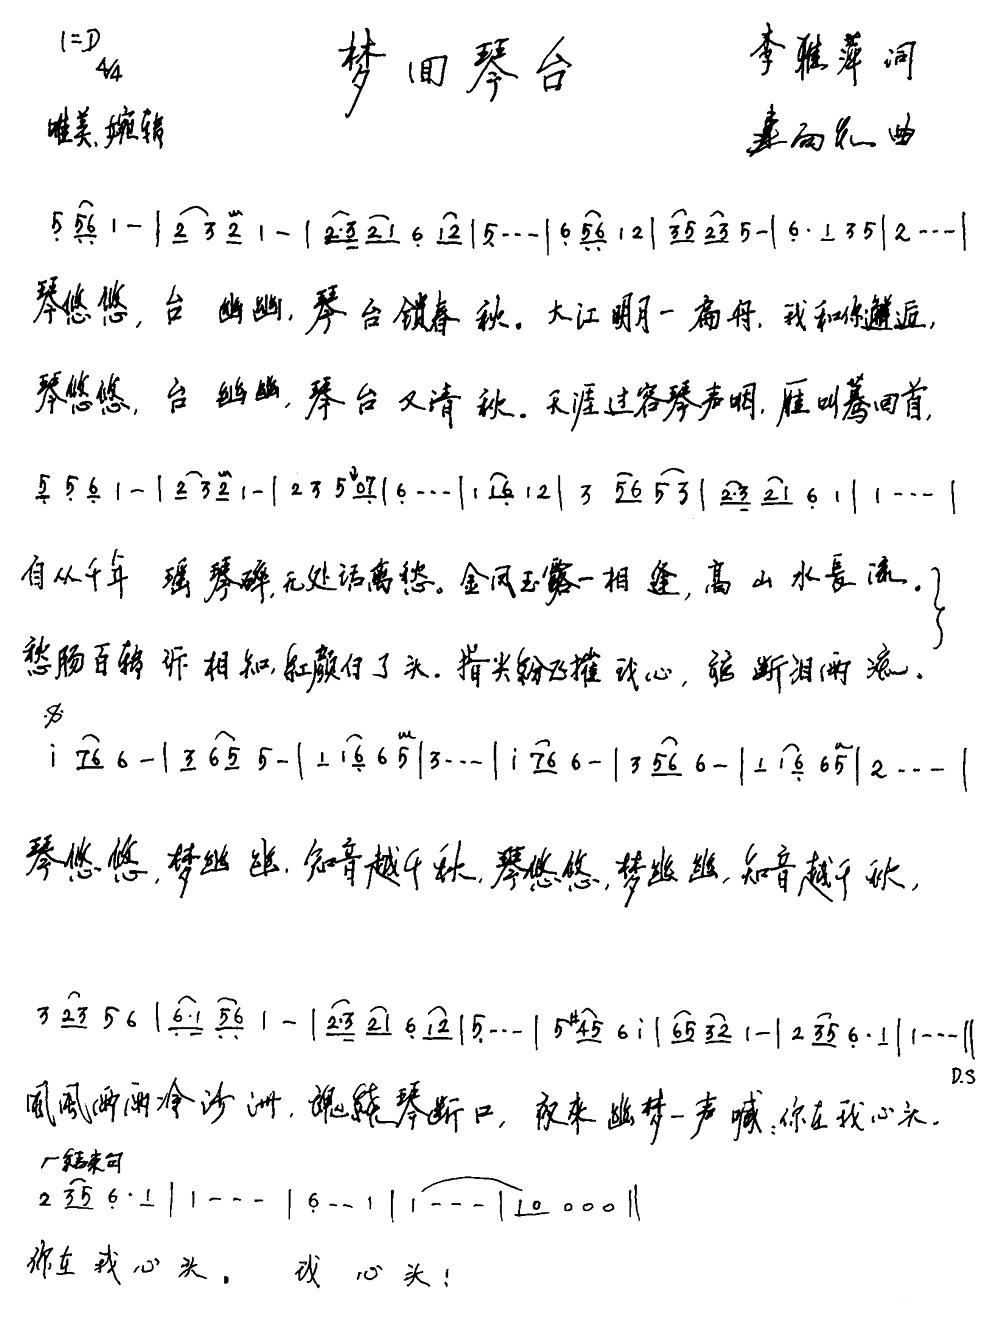 1=D 4/4
梦回琴台
李雅萍 词
唯美.婉转
雨 曲
5 56 1 - | 2 3 2 1 - | 2·3 21 6 12 | 5 - - - | 6 56 12 | 35 23 5 - | 6· 1 3 5 | 2 - - - |
琴悠悠, 台 幽幽. 琴台锁春秋。大江明月一扁舟. 我和你邂逅,
琴悠悠, 台 幽幽, 琴台又清秋。天涯过客琴声咽. 雁叫蓦回首,
5 5 6 1 - | 2 3 2 1 - | 2 3 5 07 | 6 - - - | 1 16 12 | 3 56 5 3 | 2·3 21 6 1 | 1 - - - |
自从千年 瑶琴碎,无处话离愁。金风玉露一相逢, 高山水长流.
愁肠百转诉相知, 红颜付了头. 指尖纷飞摧我心, 弦断泪两流.
i 76 6 - | 3 65 5 - | 1 i6 6 5 | 3 - - - | i 76 6 - | 3 56 6 - | 1 i6 6 5 | 2 - - - |
琴悠悠,梦幽幽. 知音越千秋. 琴悠悠,梦幽幽, 知音越千秋,
3 23 5 6 | 6·1 56 1 - | 2·3 21 6 12 | 5 - - - | 5 #45 6 i | 65 32 1 - | 2 35 6· 1 | 1 - - - ‖
D.S
风风雨雨冷沙洲, 魂绕琴断口, 夜来幽梦一声喊: 你在我心头.
结束句
2 35 6· 1 | 1 - - - | 6 - - 1 | 1 - - - | 10 0 0 0 ‖
你在我心头. 我心头!